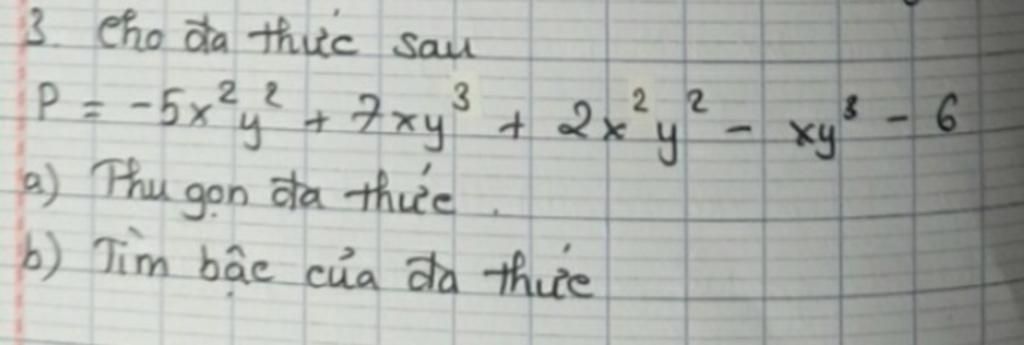 3. Cho đa thức sau
P = -5x²y² + 7xy³ + 2x²y² - xy³ - 6
a) Thu gọn đa thức.
b) Tìm bậc của đa thức